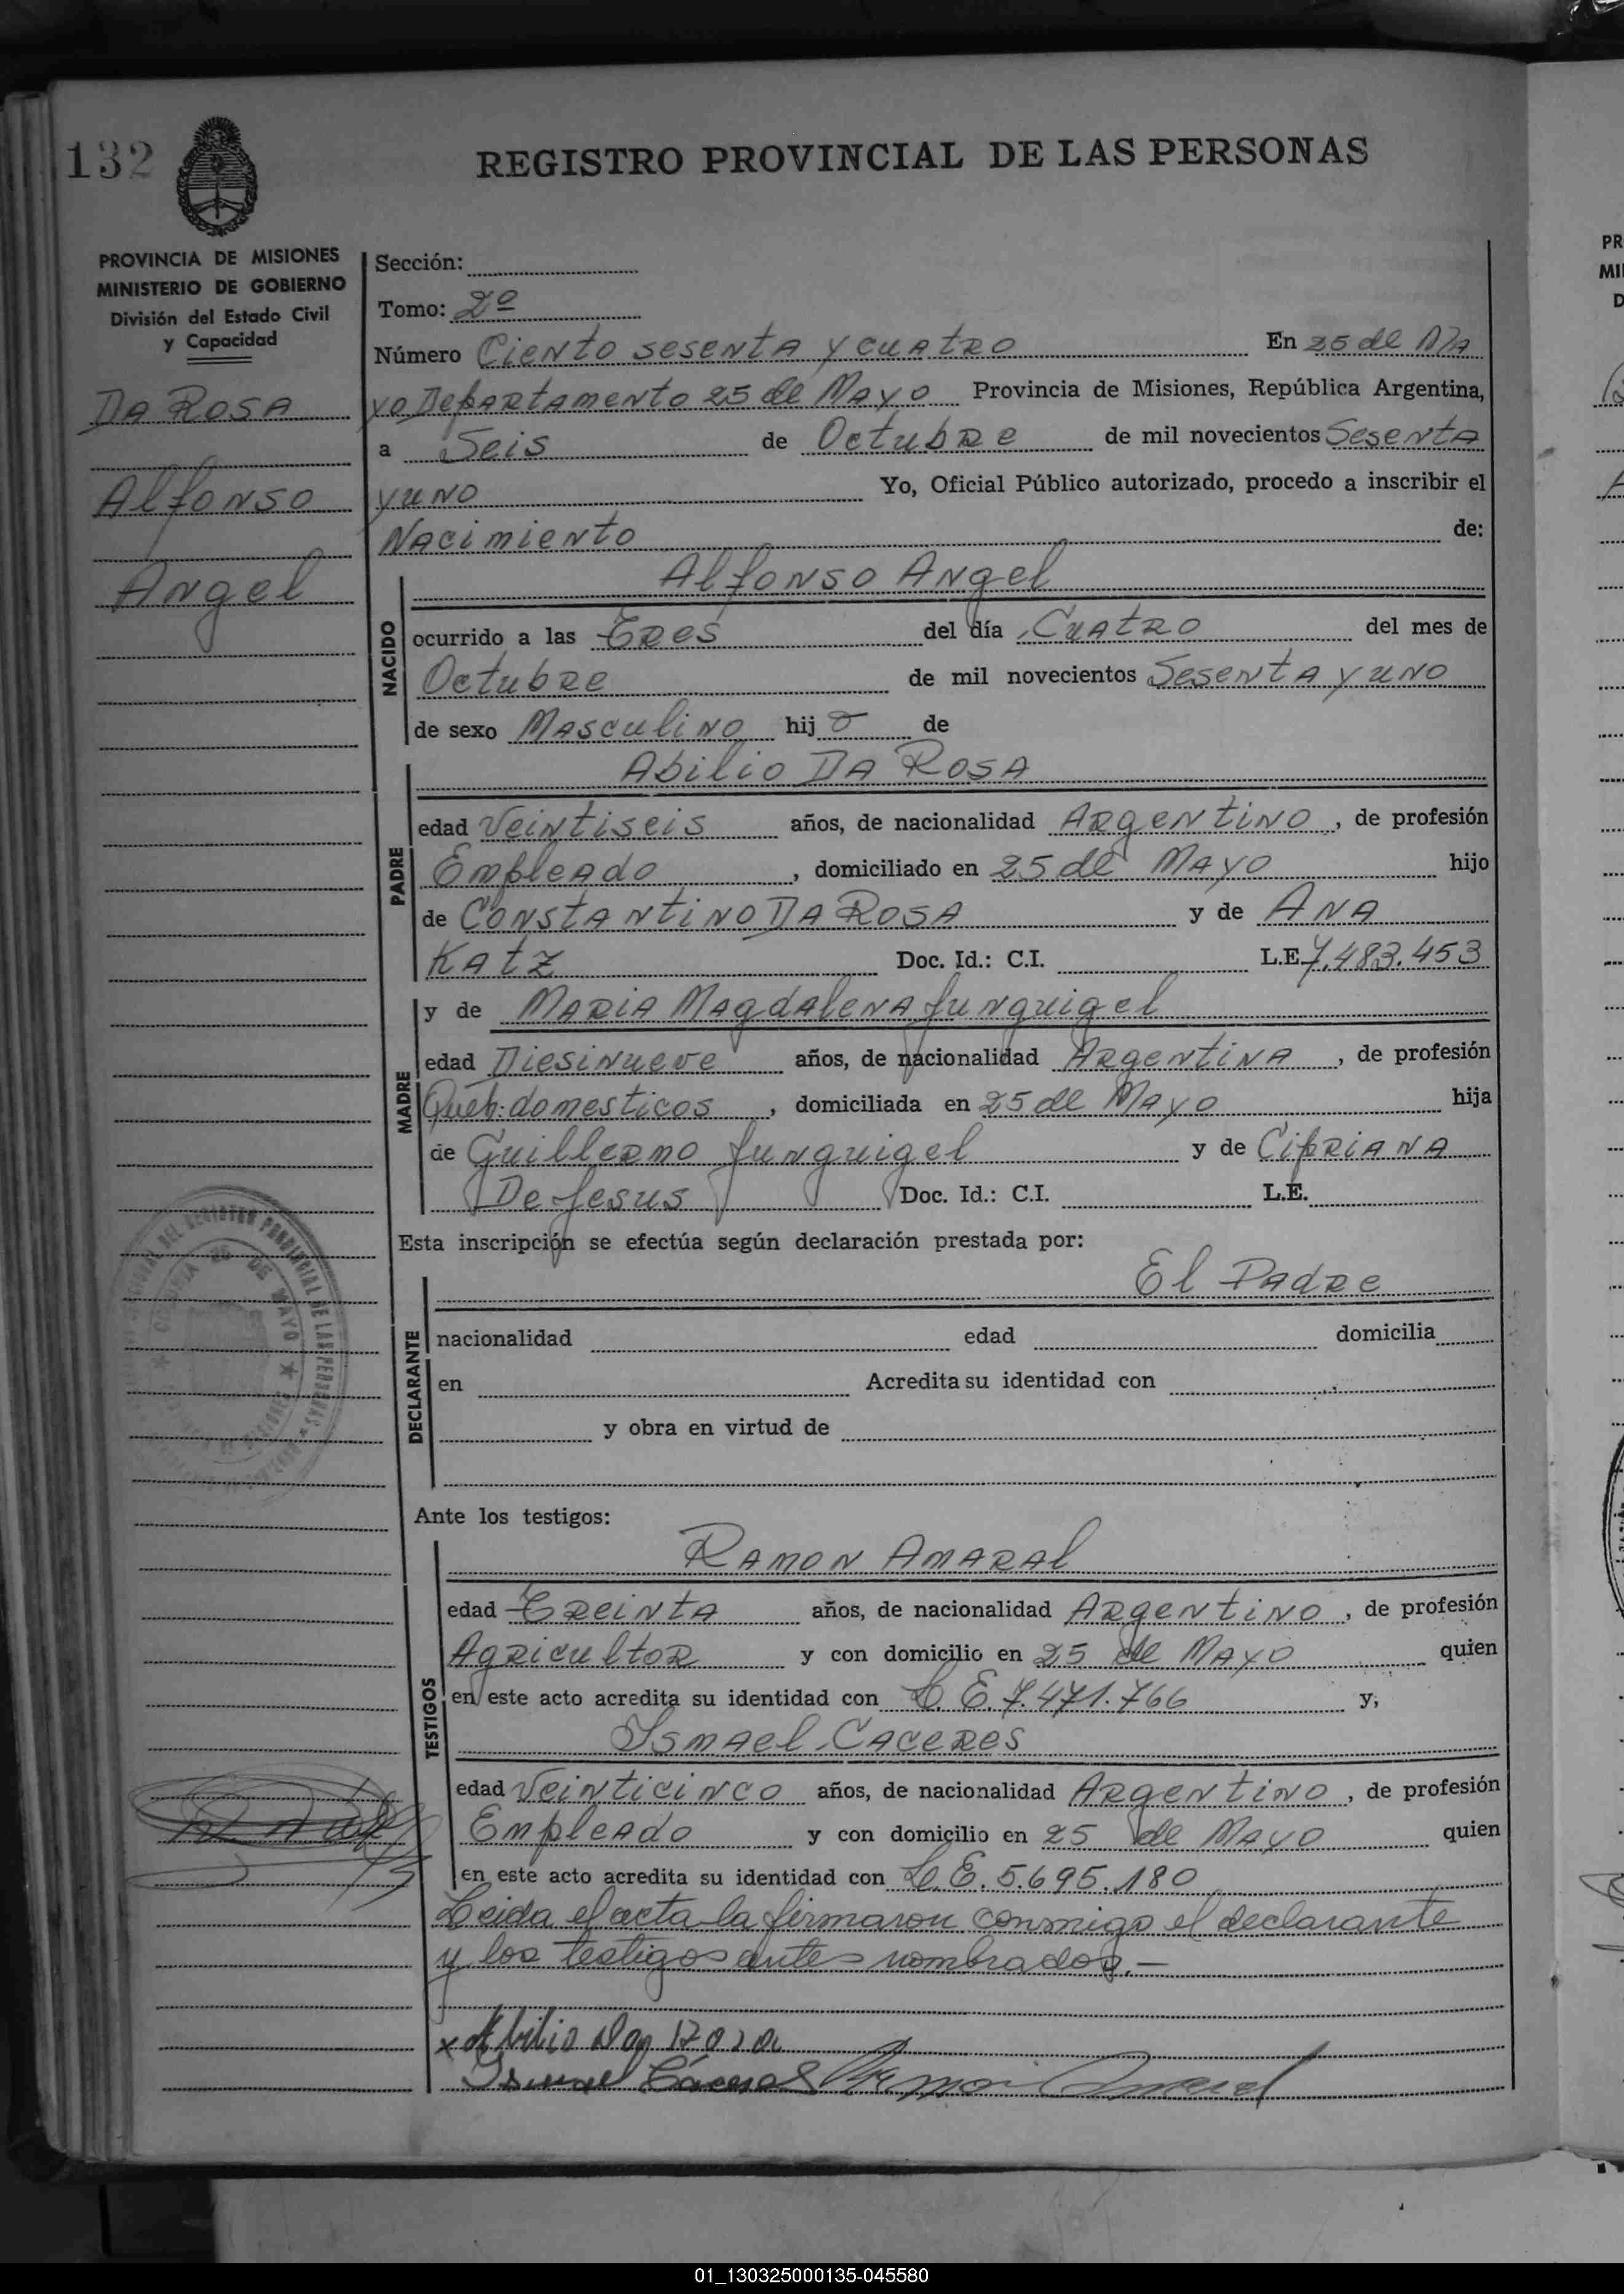 132
REGISTRO PROVINCIAL DE LAS PERSONAS
PROVINCIA DE MISIONES
MINISTERIO DE GOBIERNO
División del Estado Civil
y Capacidad
DA ROSA
Alfonso
Angel
Sección:
Tomo: 2º
Número Ciento sesenta y cuatro En 25 de Ma
yo Departamento 25 de Mayo Provincia de Misiones, República Argentina,
a Seis de Octubre de mil novecientos Sesenta
y uno Yo, Oficial Público autorizado, procedo a inscribir el
Nacimiento de:
NACIDO
Alfonso Angel
ocurrido a las Tres del día Cuatro del mes de
Octubre de mil novecientos Sesenta y uno
de sexo Masculino hijo de
PADRE
Abilio Da Rosa
edad Veintiseis años, de nacionalidad Argentino, de profesión
Empleado, domiciliado en 25 de Mayo hijo
de Constantino Da Rosa y de Ana
Katz Doc. Id.: C.I. L.E. 7.483.453
MADRE
y de Maria Magdalena Junguigel
edad Diesinueve años, de nacionalidad Argentina, de profesión
Queh. domesticos, domiciliada en 25 de Mayo hija
de Guillermo Junguigel y de Cipriana
De Jesus Doc. Id.: C.I. L.E.
Esta inscripción se efectúa según declaración prestada por:
DECLARANTE
El Padre
nacionalidad edad domicilia
en Acredita su identidad con
y obra en virtud de
Ante los testigos:
TESTIGOS
Ramon Amaral
edad Treinta años, de nacionalidad Argentino, de profesión
Agricultor y con domicilio en 25 de Mayo quien
en este acto acredita su identidad con L.E. 7.471.766 y,
Ismael Caceres
edad Veinticinco años, de nacionalidad Argentino, de profesión
Empleado y con domicilio en 25 de Mayo quien
en este acto acredita su identidad con L.E. 5.695.180
Leida el acta la firmaron conmigo el declarante
y los testigos antes nombrados.—
x Abilio Da Roza
Ismael Cáceres Ramon Amaral
01_130325000135-045580